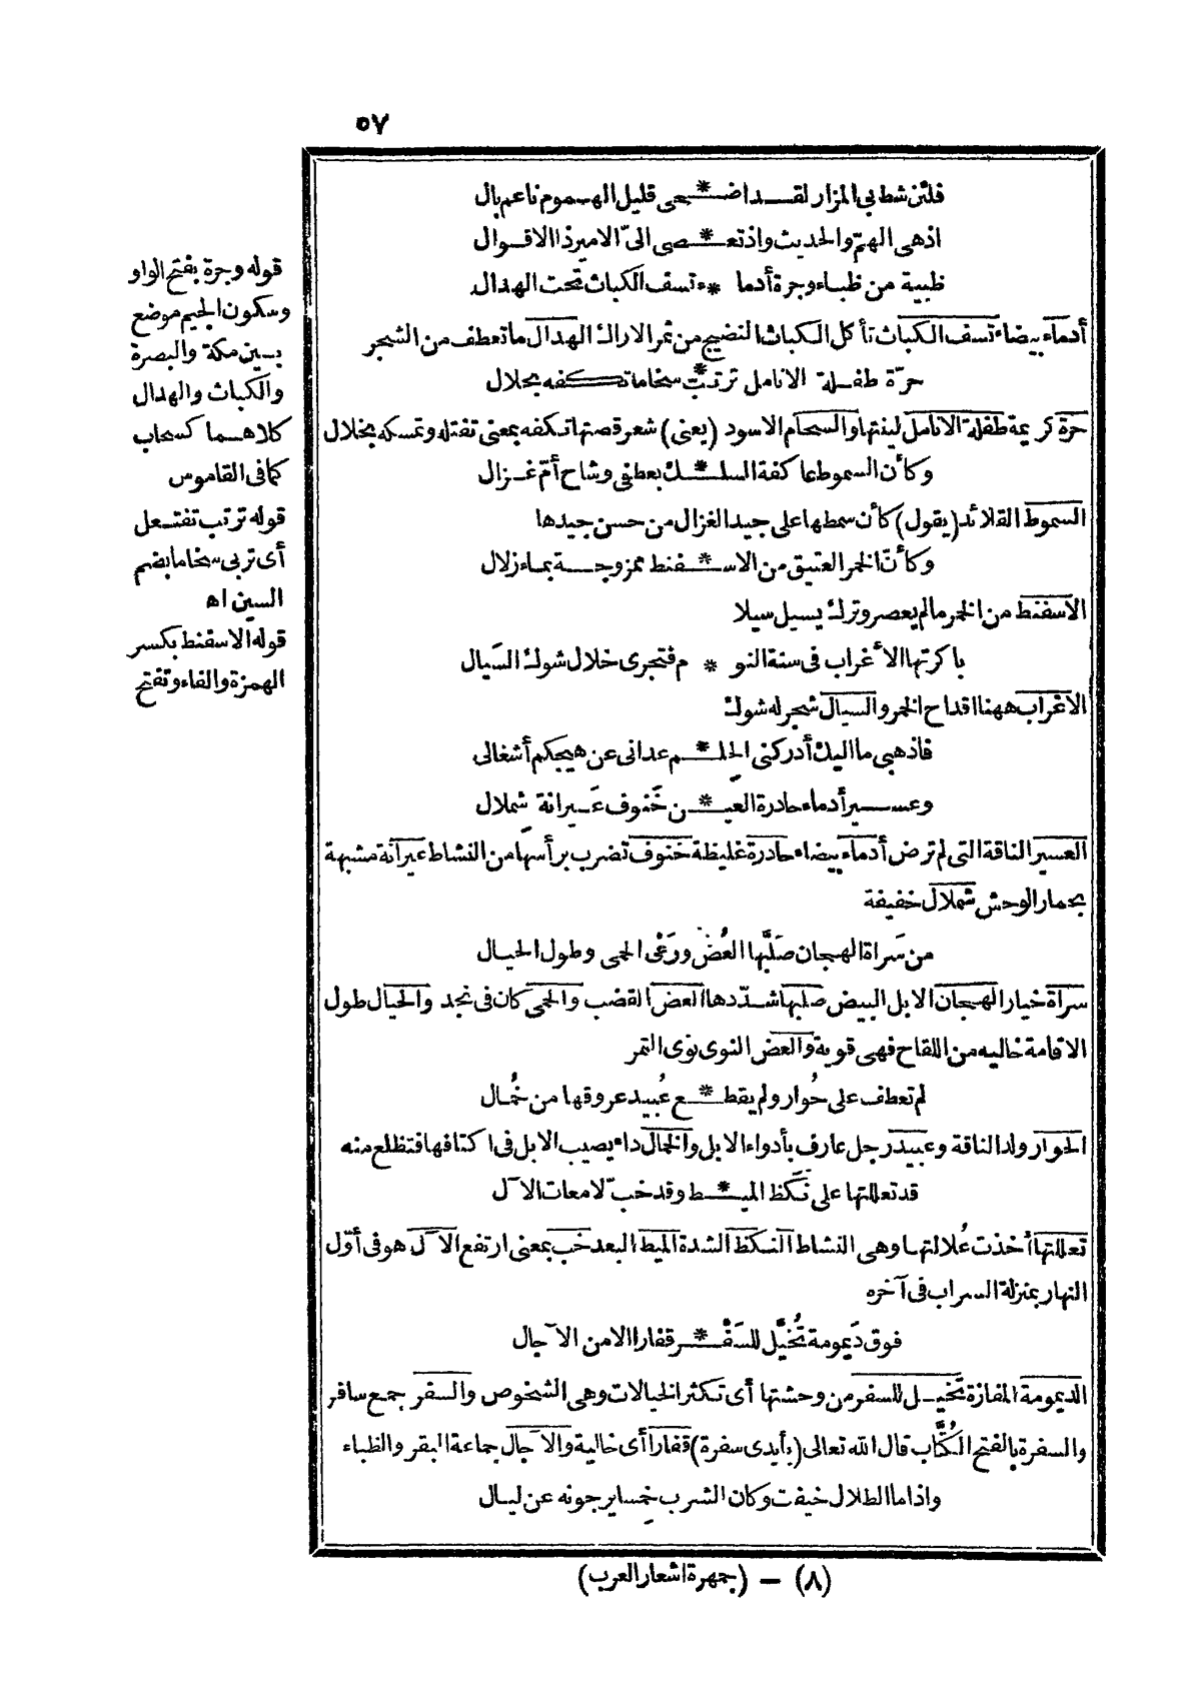 ٥٧
فلئن شط بي المزار لقد اضـ * ـحى قليل الهموم ناعم بال
اذ هى الهمّ والحديث واذ تعـ * ـصى الىّ الامير ذا الاقوال
ظبية من ظباء وجرة أدما * ء تسف الكباث تحت الهدال
أدماء بيضاء تسف الكباث تأكل الكباث النضيج من ثمر الاراك الهدال ما تعطف من الشجر
حرّة طفلة الانامل ترتبّ * سخاما تكفه بخلال
حرة كريمة طفلة الانامل لينتها والسحام الاسود (يعنى) شعر قصتها تكفه بمعنى تفتله وتمسكه بخلال
وكأن السموط عاكفة السلـ * ـك بعطفى وشاح أمّ غزال
السموط القلائد (يقول) كأن سمطها على جيد الغزال من حسن جيدها
وكأنّ الخمر العتيق من الاسـ * ـفنط ممزوجة بماء زلال
الاسفنط من الخمر مالم يعصر وترك يسيل سيلا
باكرتها الأغراب فى سنة النو * م فتجرى خلال شوك السَيال
الاغراب ههنا اقداح الخمر والسيال شجر له شوك
فاذهبى ما اليك أدركنى الحِلـ * ـم عدانى عن هيجكم أشغالى
وعسير أدماء حادرة العيـ * ـن خَنوف عَيرانة شِملال
العسير الناقة التى لم ترض أدماء بيضاء حادرة غليظة خنوف تضرب برأسها من النشاط عيرانة مشبهة
بحمار الوحش شملال خفيفة
من سَراة الهجان صَلَّبها العُضّ ورَعْى الحمى وطول الحيال
سراة خيار الهجان الابل البيض صلبها شدّدها العض القضب والحمى كان فى نجد والحيال طول
الاقامة خاليه من اللقاح فهى قوية والعض النوى نوى التمر
لم تعطف على حُوار ولم يقطـ * ـع عُبيد عروقها من خُمال
الحوار ولد الناقة وعبيد رجل عارف بأدواء الابل والخمال داء يصيب الابل فى اكتافها فتظلع منه
قد تعللتها على نَكَظ الميـ * ـط وقد خبّ لامعات الآل
تعللتها أخذت عُلالتها وهى النشاط النكظ الشدة الميط البعد خب بمعنى ارتفع الآل هو فى أوّل
النهار بمنزلة السراب فى آخره
فوق دَيمومة تُخيَّل للسَفْـ * ـر قفارا الا من الآجال
الديمومة المفازة تخيل للسفر من وحشتها أى تكثر الخيالات وهى الشخوص والسفر جمع سافر
والسفرة بالفتح الكُتَّاب قال الله تعالى (بأيدى سفرة) قفارا أى خالية والآجال جماعة البقر والظباء
واذا ما الظلال خيفت وكان الشرب خِمسا يرجونه عن ليال
قوله وجرة بفتح الواو
وسكون الجيم موضع
بين مكة والبصرة
والكباث والهدال
كلاهما كسحاب
كما فى القاموس
قوله ترتب تفتعل
أى تربى سخاما بضم
السين اه
قوله الاسفنط بكسر
الهمزة والفاء وتفتح
(٨) – (جمهرة اشعار العرب)